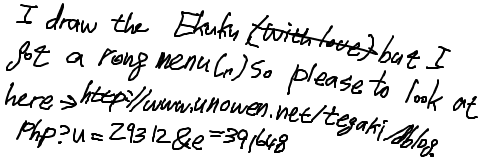 I draw the Ekuku (with love) but I
got a rong menu(r) so please to look at
here→http://www.unowen.net/tegaki/dblog.
php?u=29312&e=391648